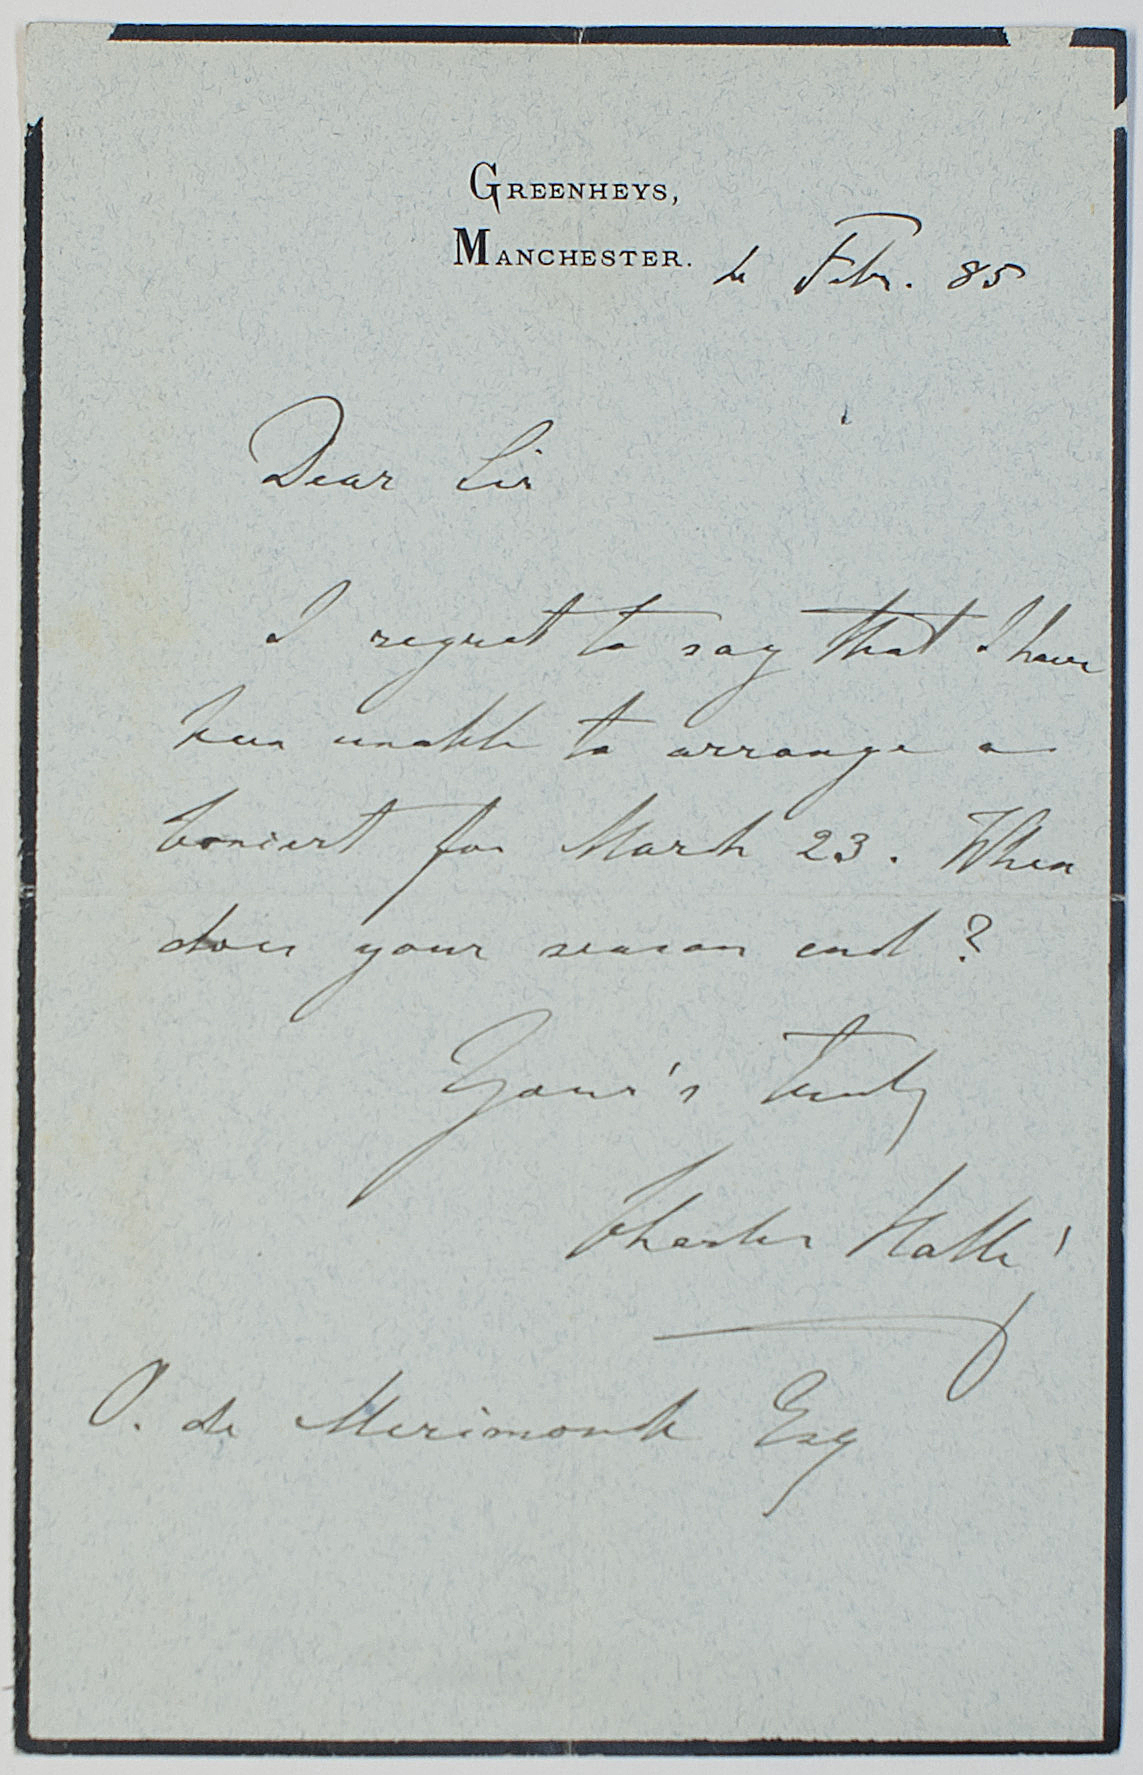 GREENHEYS,
MANCHESTER. 4 Febr. 85
Dear Sir
I regret to say that I have
been unable to arrange a
Concert for March 23. When
does your season end?
Your's truly
Charles Hallé
O. de Merimont Esq